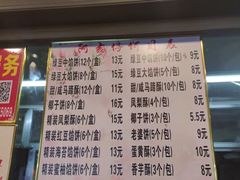 务
绿豆中馅饼(12个/盒) 13元
绿豆大馅饼(8个/盒) 15元
甜/咸马蹄酥(12个/盒) 13元
甜/咸马蹄酥(8个/盒) 11元
椰子饼(8个/盒) 16元
精装凤梨酥(6个/盒) 13元
精装红豆馅饼(6个/盒) 13元
精装海苔馅饼(6个/盒) 13元
精装蜜柚馅饼(6个/盒) 13元
绿豆中馅饼(10个/包) 9元
绿豆大馅饼(5个/包) 8元
甜/咸马蹄酥(5个/包) 8元
凤梨酥(4个/包) 8元
椰子饼(3个/包) 5.5元
老婆饼(5个/包) 9元
蛋黄酥(3个/包) 10元
香芋酥(3个/包) 8元